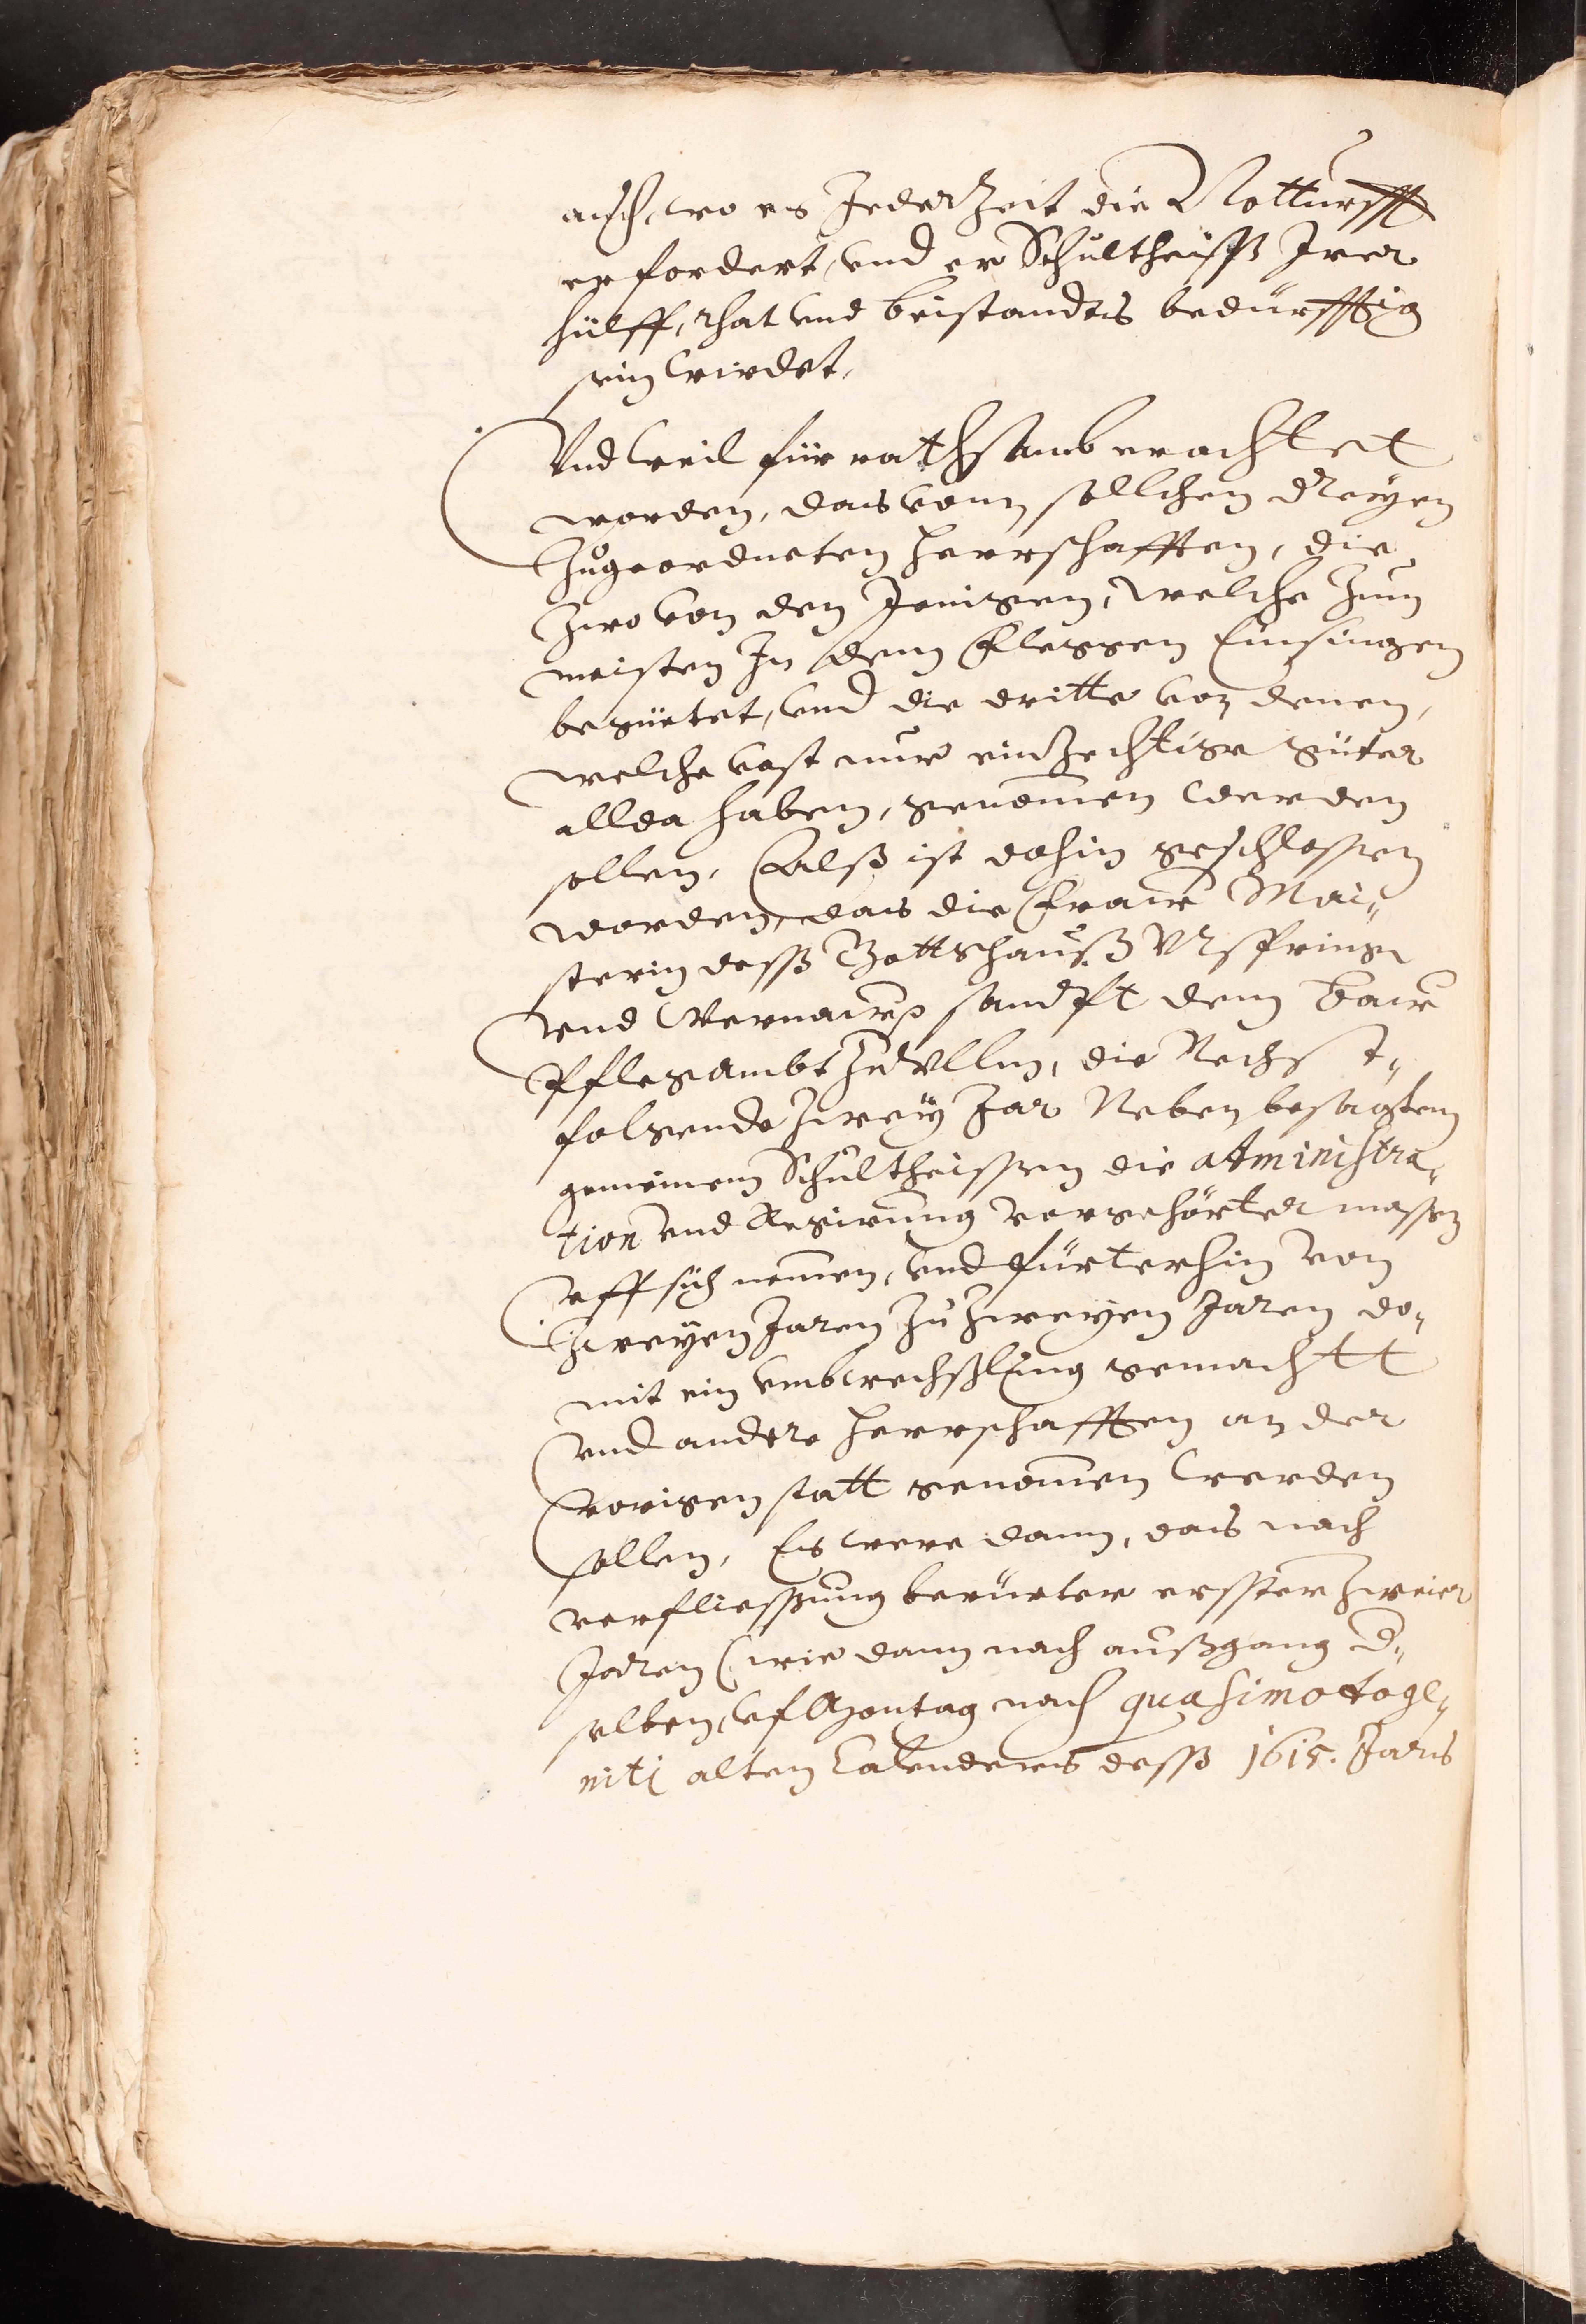 auch, wo es Jederzeit die Notturfft
erfordert, vnd er Schultheiß Irer
hülff, rhat vnd beistandts bedürfftig
sein wirdet.
Vnd weil für rathsamb erachtet
worden, das vonn sollchen dreyen
Zugeordneten herrschafften, die
Zwo von den Jenigen, welche Zum
meisten In dem Flecken Einsingen
begüetet, vnd die dritte von denen,
welche vast nur einzechtige güter
allda haben, genomen werden
sollen, Alß ist dahin geschlossen
worden, das die Fraw Mai„
sterin deß Gottshauß Vrspring
vnd Wernaw sampt dem Baw
Pflegambt zu Vllm, die Nechst„
folgende zwey Jar Neben besagtem
gemeinem Schultheissen die administra„
tion vnd Regirung vorgehörter massen
vff sich nemen, vnd fürterhin von
Zweyen Jaren zu Zweyen Jaren do„
mit ein vmbwechßlung gemachtt
vnd andere herrschafften an der
vorigen statt genomen werden
sollen, Es were dann, das nach
verfliessung berürter ersten zweier
Jaren (wie dann nach außgang d„
selben, vf Montag nach quasimodoge„
niti alten Calenders deß 1615. Jars